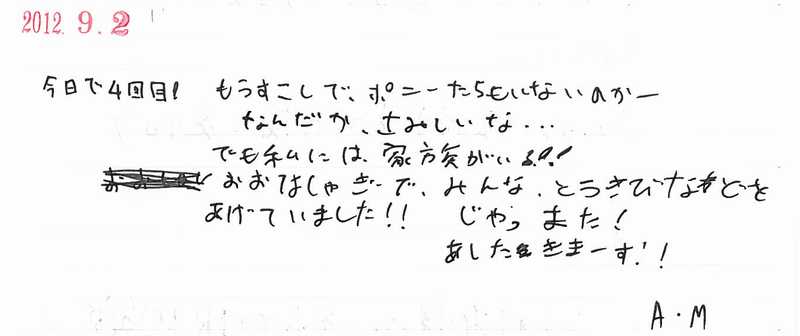 2012. 9. 2
今日で4回目! もうすこしで、ポニーたちもいないのかー
なんだか、さみしいな...
でも私には、家族がいる!!!
おおはしゃぎで、みんな、とうきびなどを
あげていました!! じゃっ また!
あしたもきまーす!!
A・M